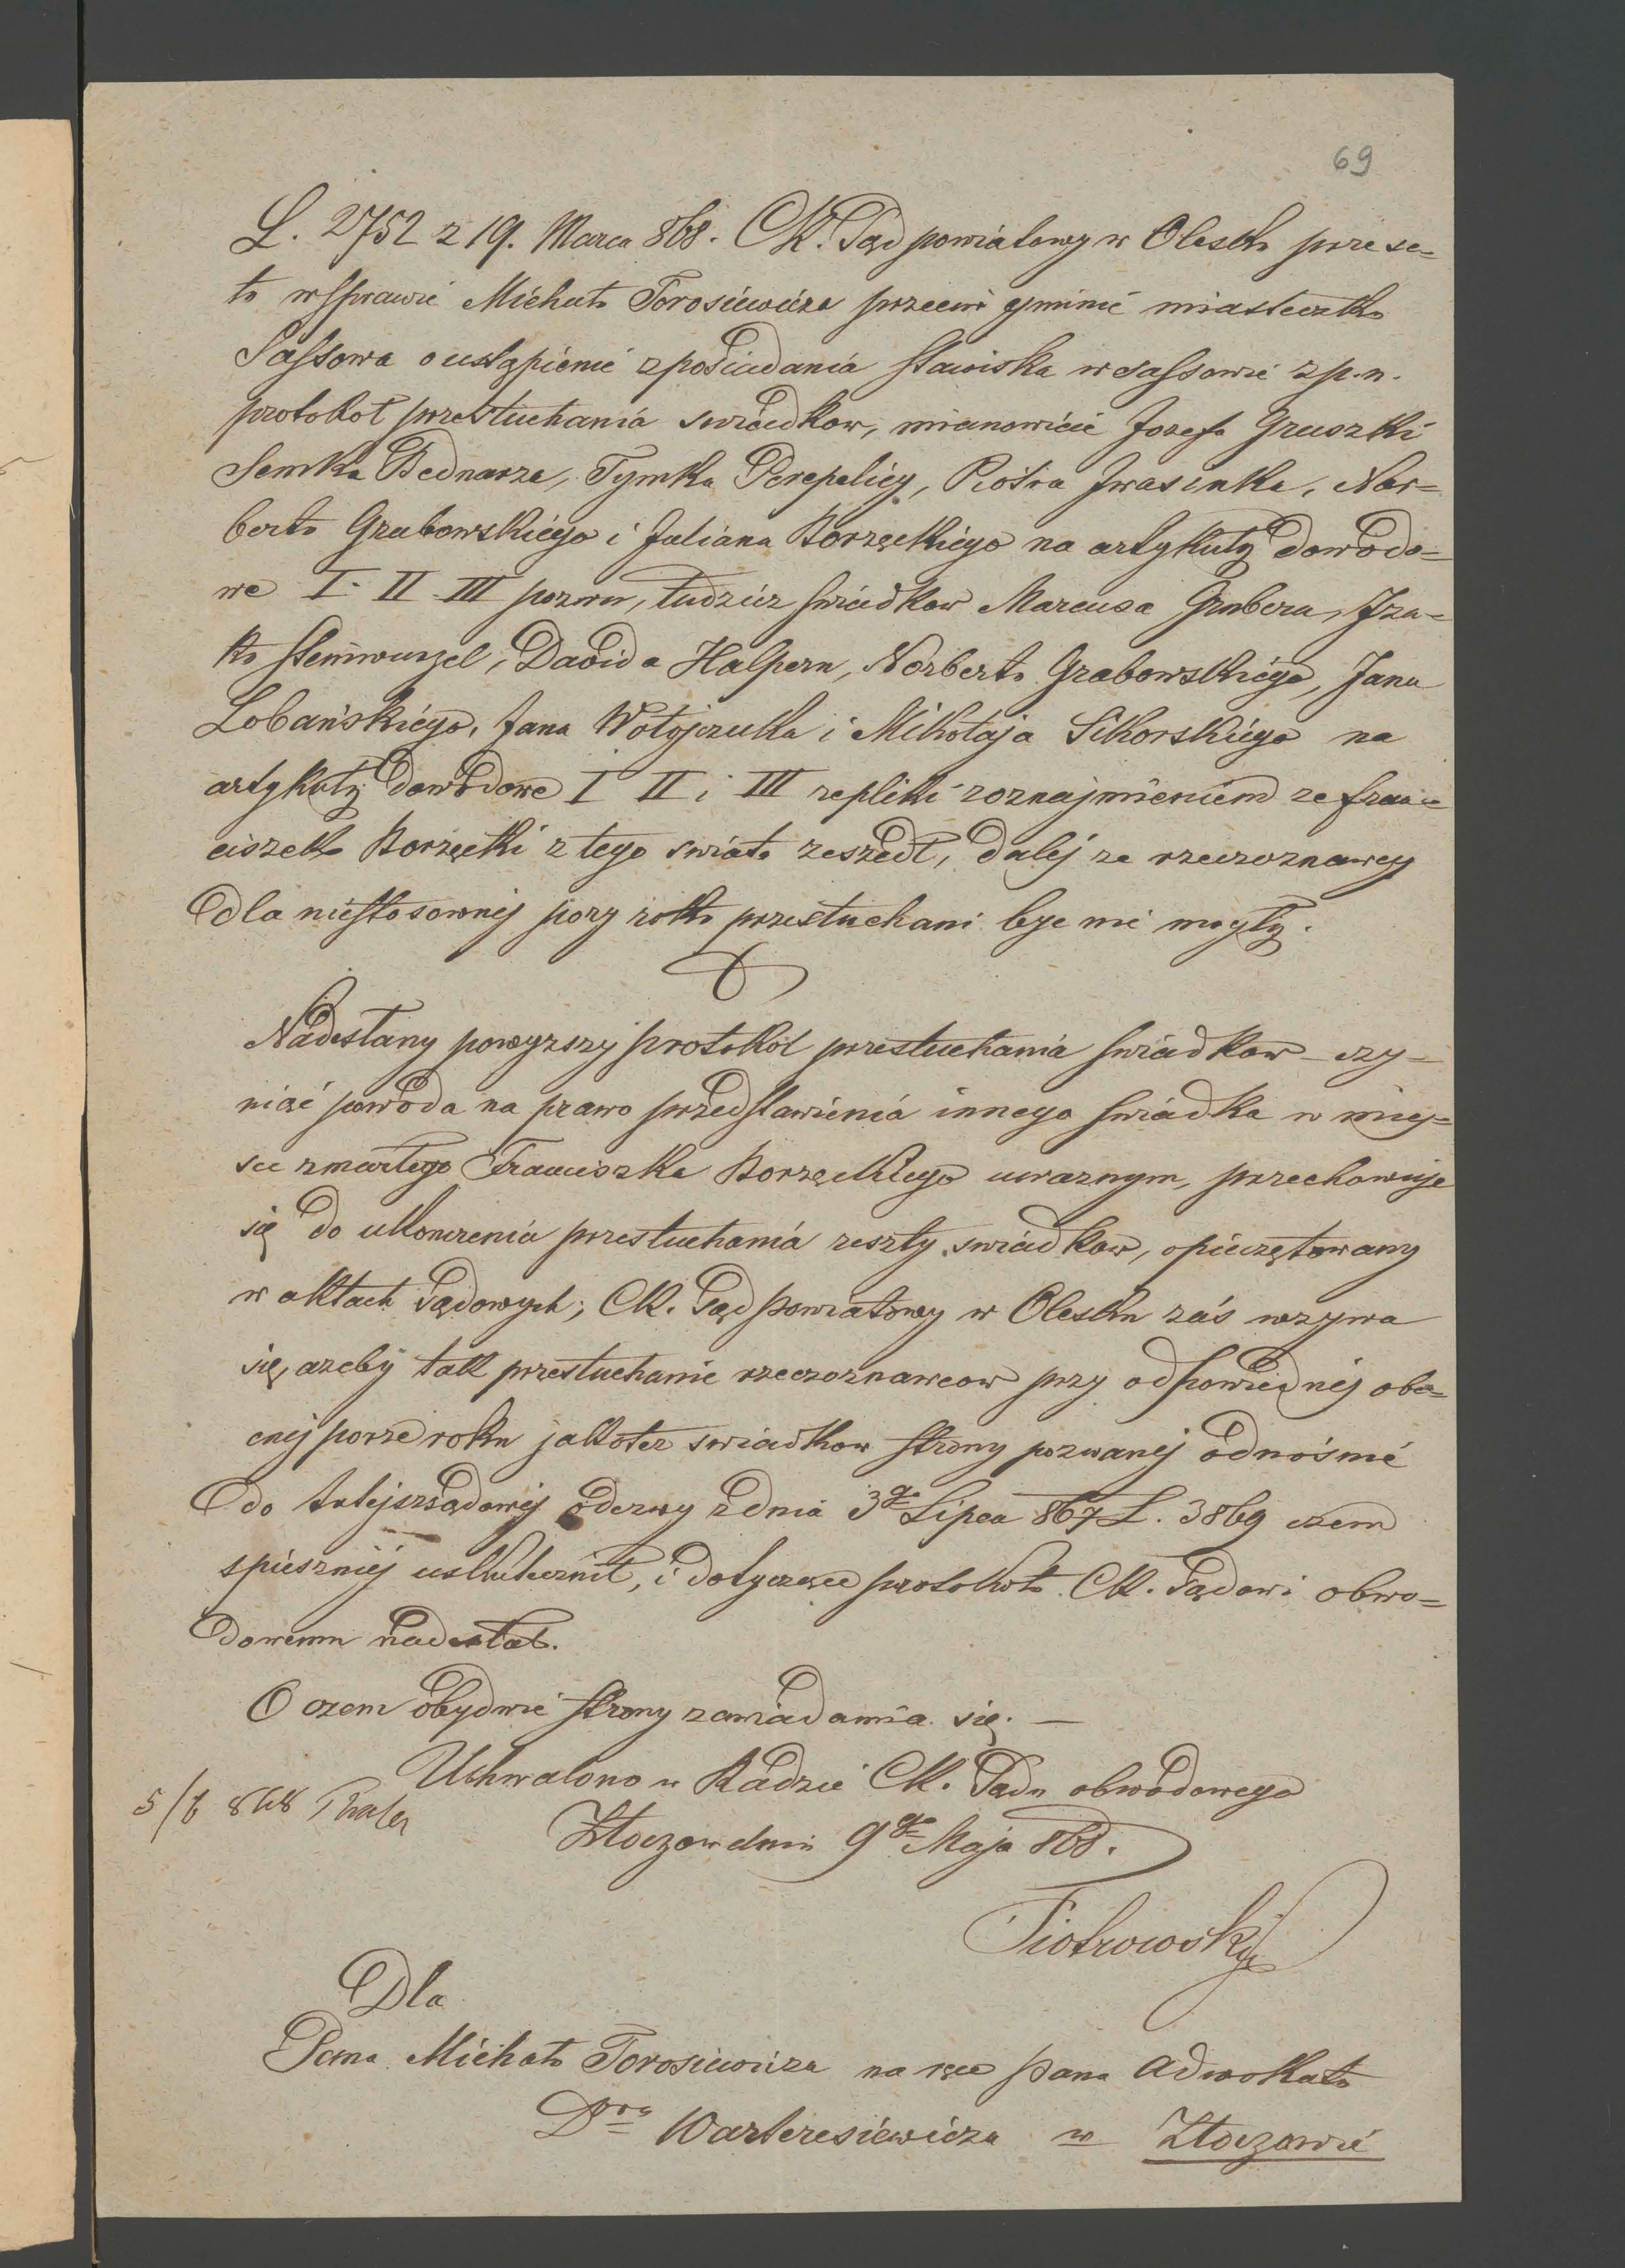 69
L. 2752 z 19. Marca 868. CK. Sąd powiatowy w Olesku przese=
ła w sprawie Michała Torosiewicza przeciw gminie miasteczka
Sassowa o ustąpienie z posiadania stawiska w Sassowie z p. n.
protokoł przesłuchania swiadkow, mianowicie Jozefa Gruszki
Semka Bednarza, Tymka Perepelicy, Piotra Iwasinka, Nor=
berta Grabowskiego i Juliana Borzęckiego na artykuły dowodo=
we I. II III pozwu, tudzież swiadkow Marcusa Grubera, Iza=
ka Steinwurzel, Dawida Halpern, Norberta Grabowskiego, Jana
Lobańskiego, Jana Wołojczuka i Mikołaja Sikorskiego na
artykuły dowodowe I II i III repliki z oznajmieniem ze Fran=
ciszek Borzęcki z tego swiata zeszedł, dalej ze rzeczoznawcy
dla niestosownej pory roku przesłuchani byc nie mogły.
Nadesłany powyzszy protokół przesłuchania swiadkow czy=
niąć powoda na prawo przedstawienia innego swiadka w miej=
sce zmarłego Franciszka Borzęckiego uwaznym, przechowuje
się do ukonczenia przesłuchania reszty swiadkow, opieczętowany
w aktach Sądowych; CK. Sąd powiatowy w Olesku zaś wzywa
się, azeby tak przesłuchanie rzeczoznawcow przy odpowiednej obe=
cnej porze roku jakotez swiadkow strony pozwanej odnośnie
do tutejszsądowej odezwy z dnia 3go Lipca 867 L. 3869 czem
spieszniej uskutecznił, i dotyczące protokoła CK. Sądowi obwo=
dowemu nadesłał.
O czem obydwie strony zawiadamia się. —
Uchwalono w Radzie CK. Sądu obwodowego
5/6 868
Złoczow dnia 9go Maja 868.
Piotrowski
Dla
Pana Michała Torosiewicza na ręce pana adwokata
Dra Warteresiewicza w Złoczowie